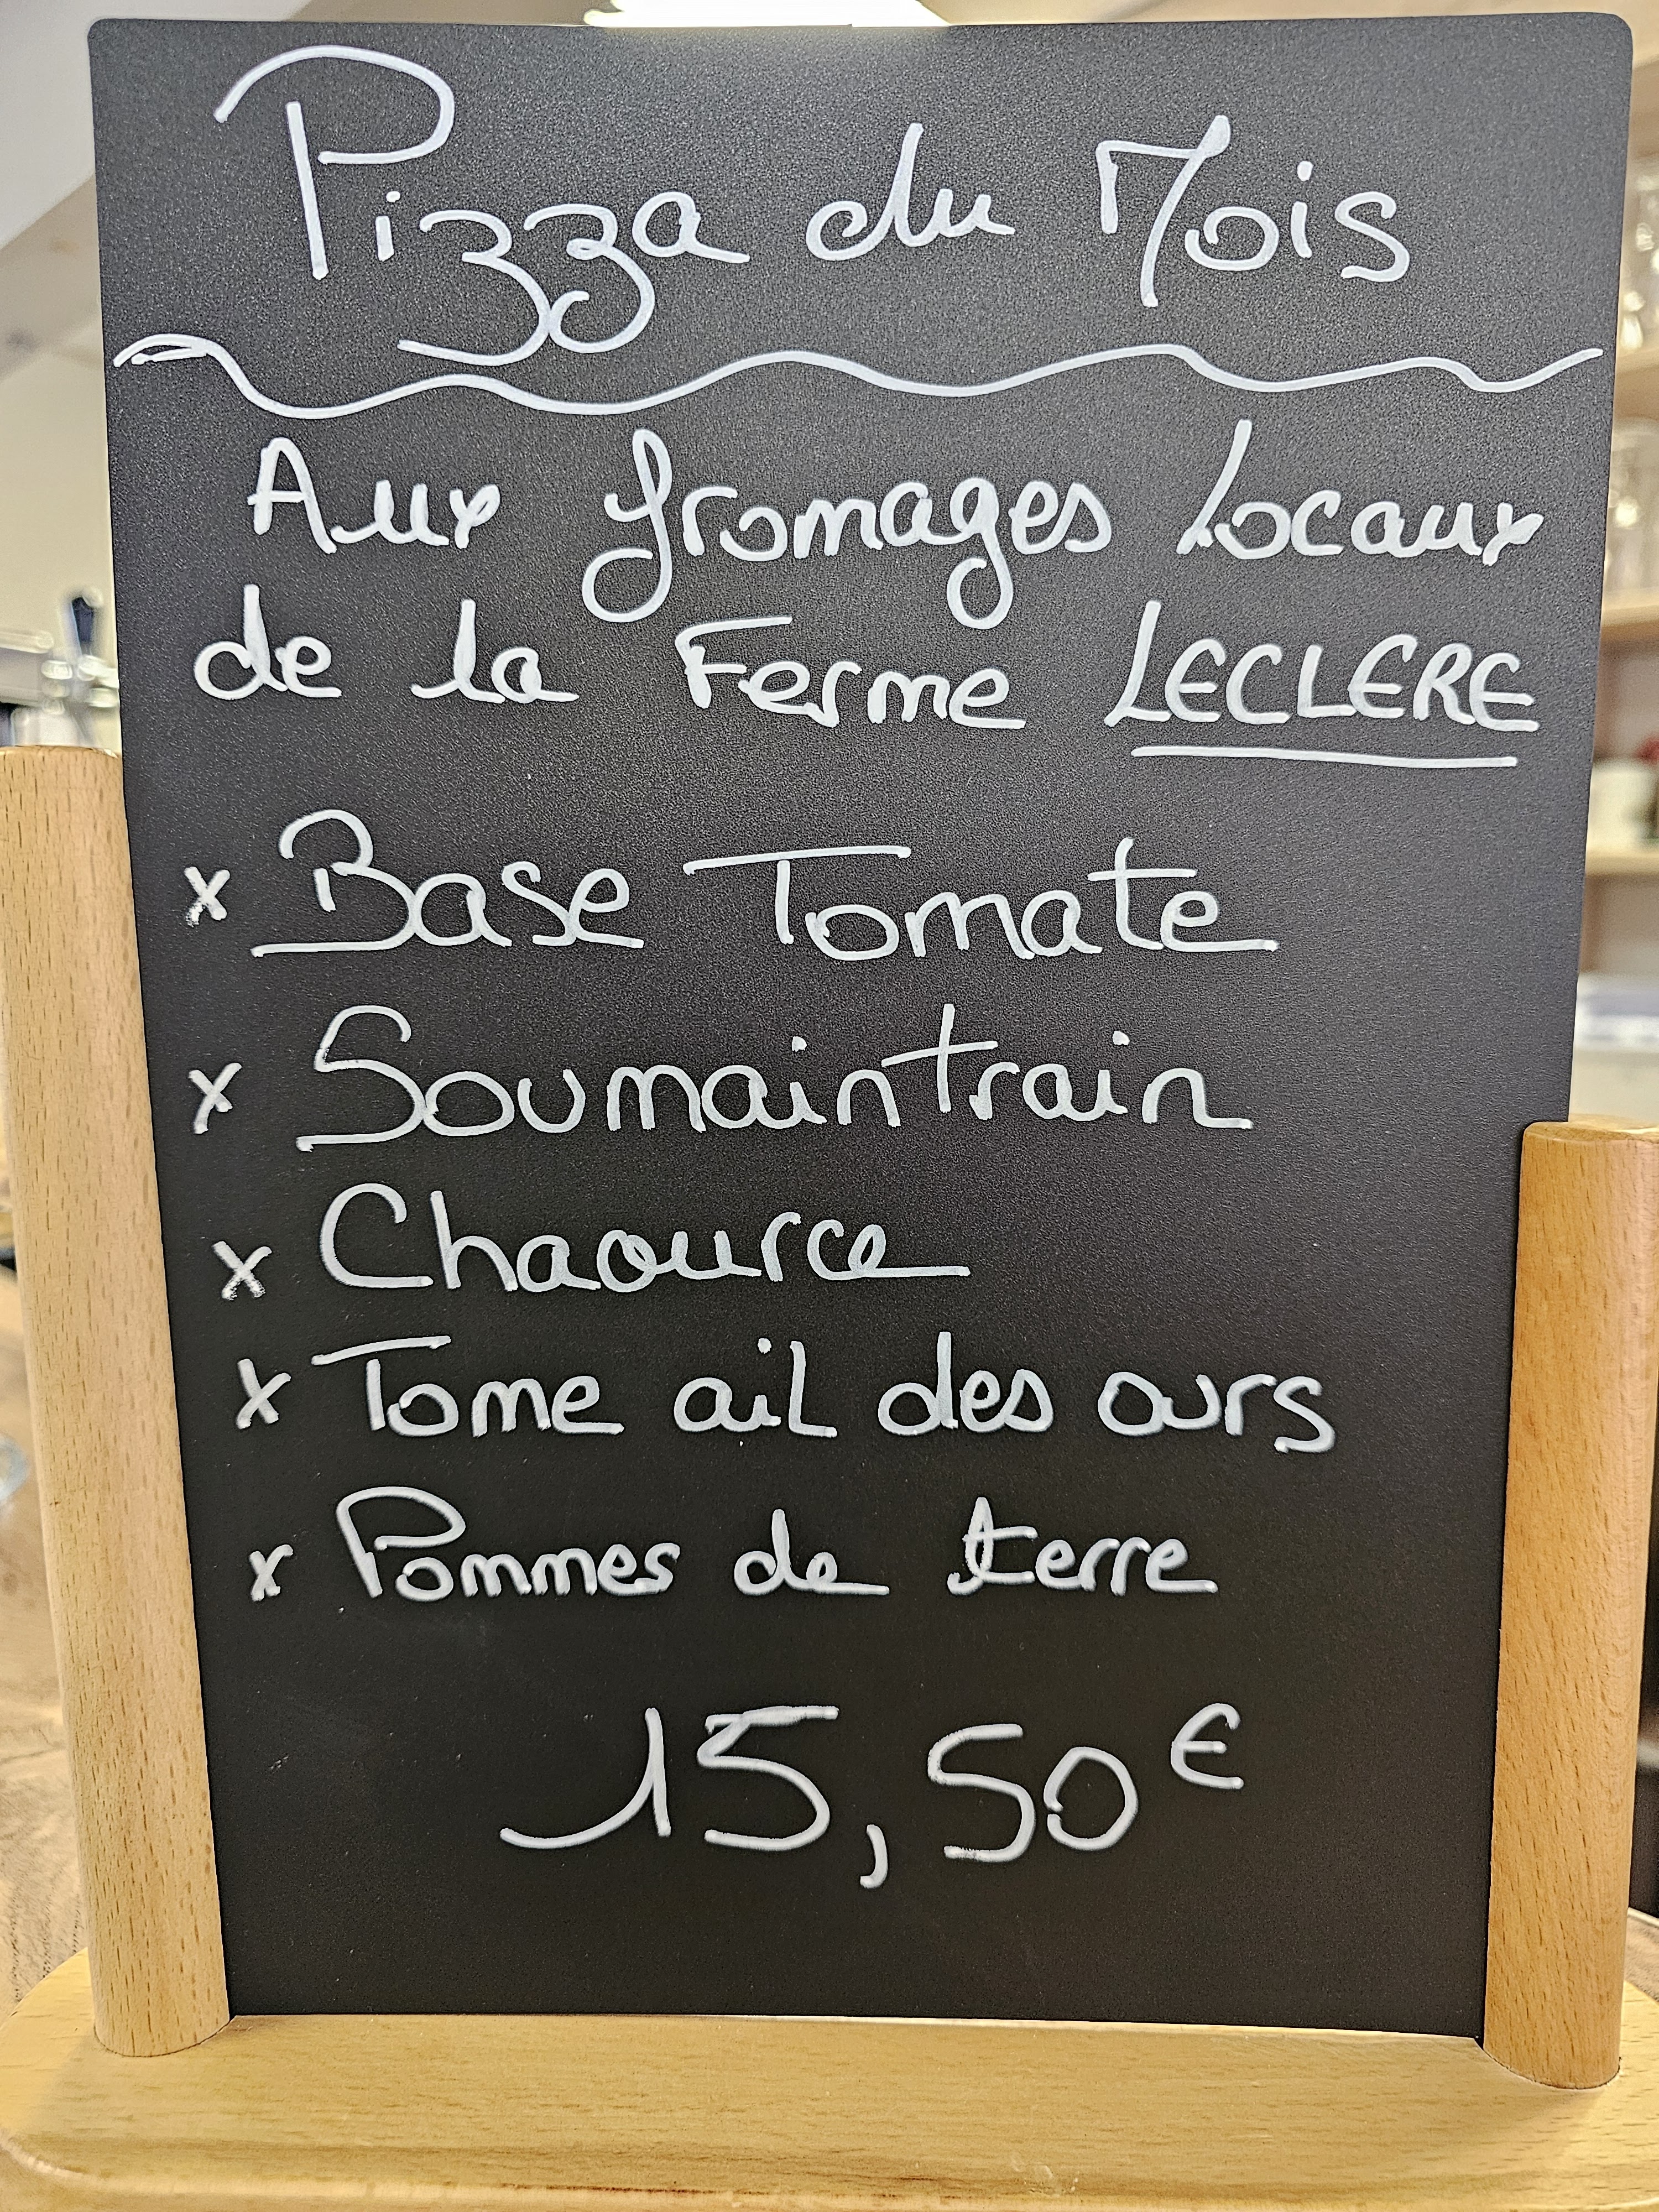 Pizza du Mois
Aux fromages Locaux
de la Ferme LECLERE
x Base Tomate
x Soumaintrain
x Chaource
x Tome ail des ours
x Pommes de terre
15,50€